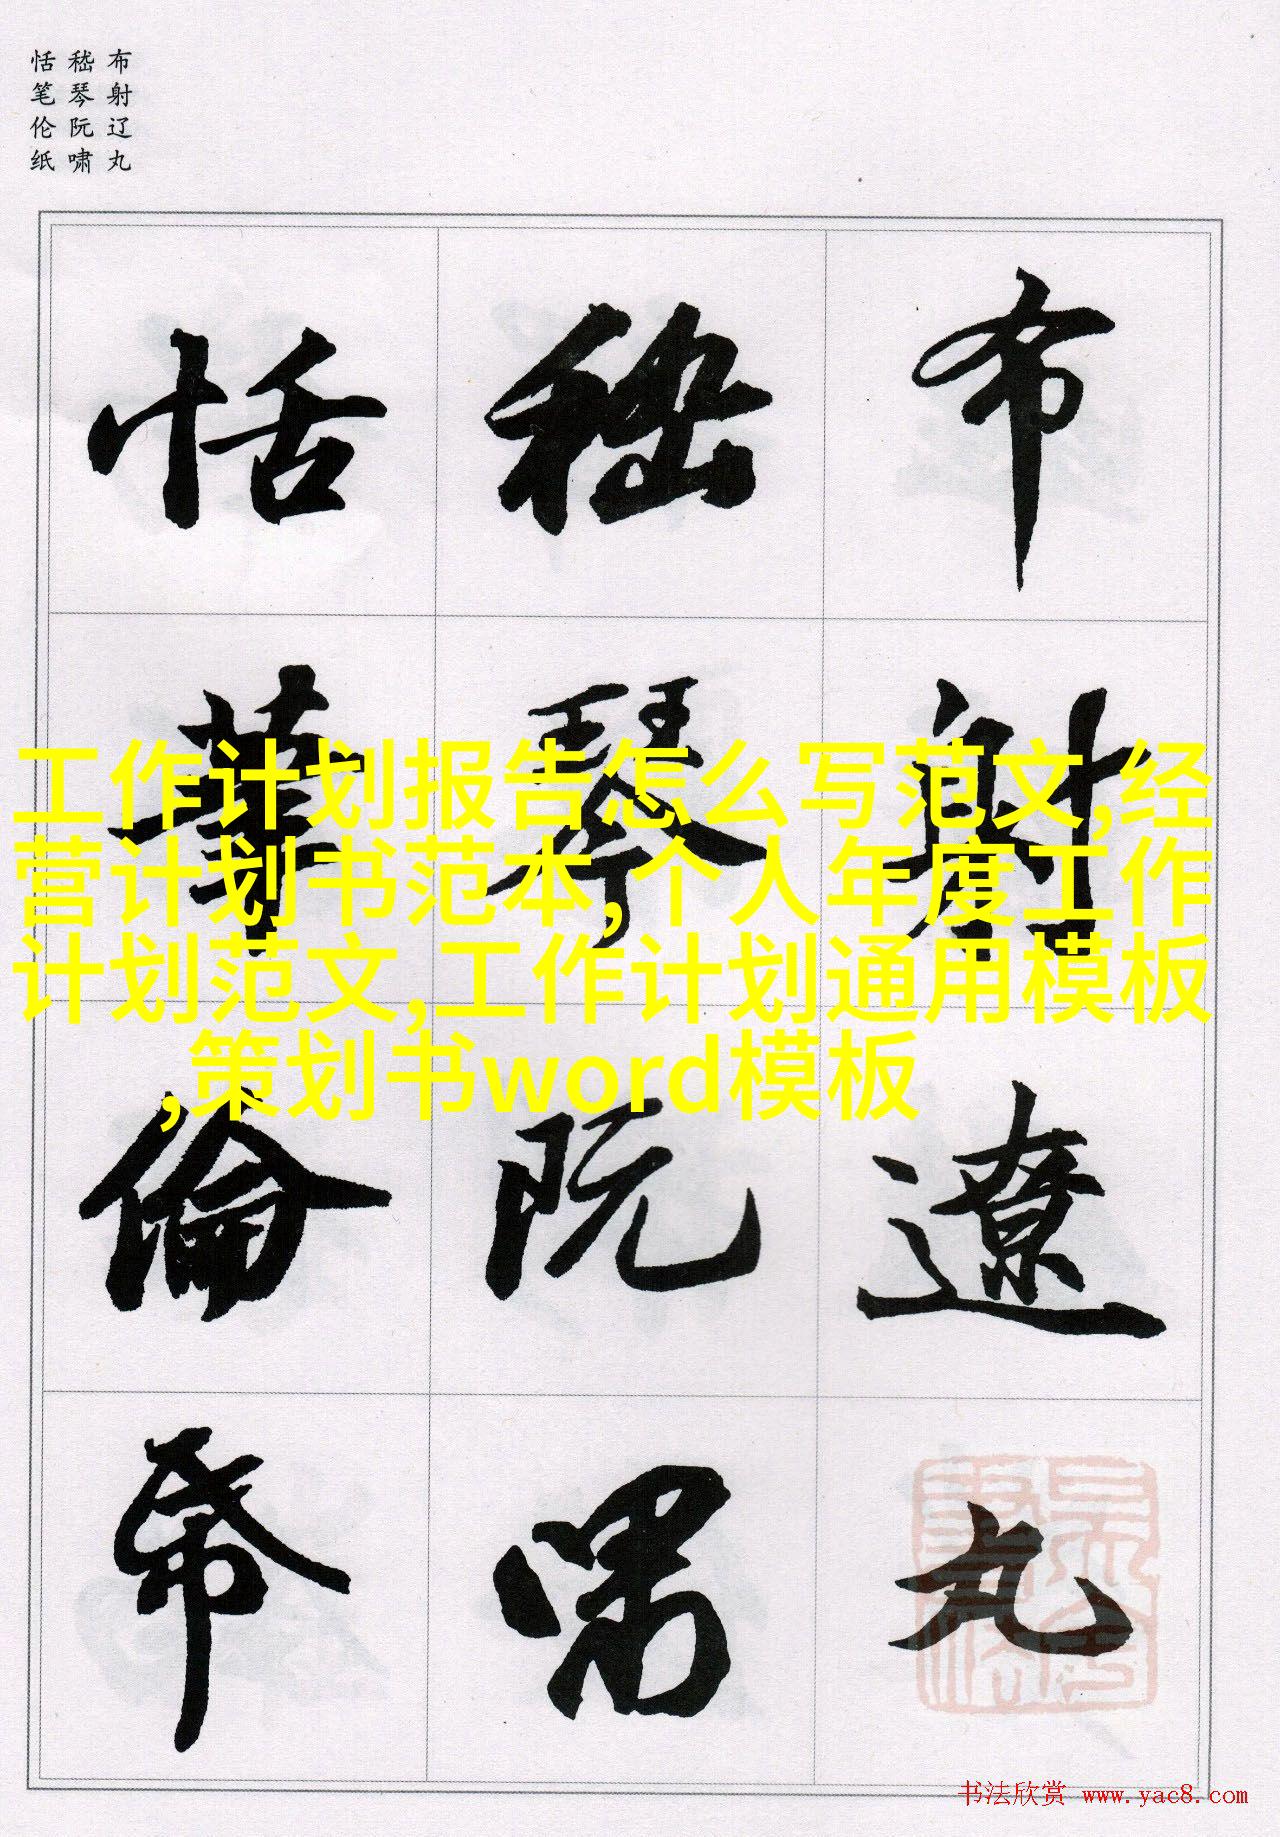 布射辽丸
嵇琴阮啸
恬笔伦纸
布射遼丸
嵇琴阮啸
恬筆倫帋
工作计划报告怎么写范文,经
营计划书范本,个人年度工作
计划范文,工作计划通用模板
,策划书word模板
书法欣赏 www.yac8.com